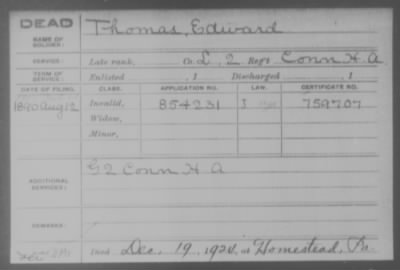 DEAD
NAME OF SOLDIER: Thomas, Edward
SERVICE: Late rank, Co. L, 2 Reg't Conn H A
TERM OF SERVICE: Enlisted , 1 Discharged , 1
DATE OF FILING. CLASS. APPLICATION NO. LAW. CERTIFICATE NO.
1890 Aug 12 Invalid, 854231 759707
Widow,
Minor,
ADDITIONAL SERVICES: G 2 Conn H A
REMARKS:
Died Dec. 19, 1924, at Homestead, Pa.